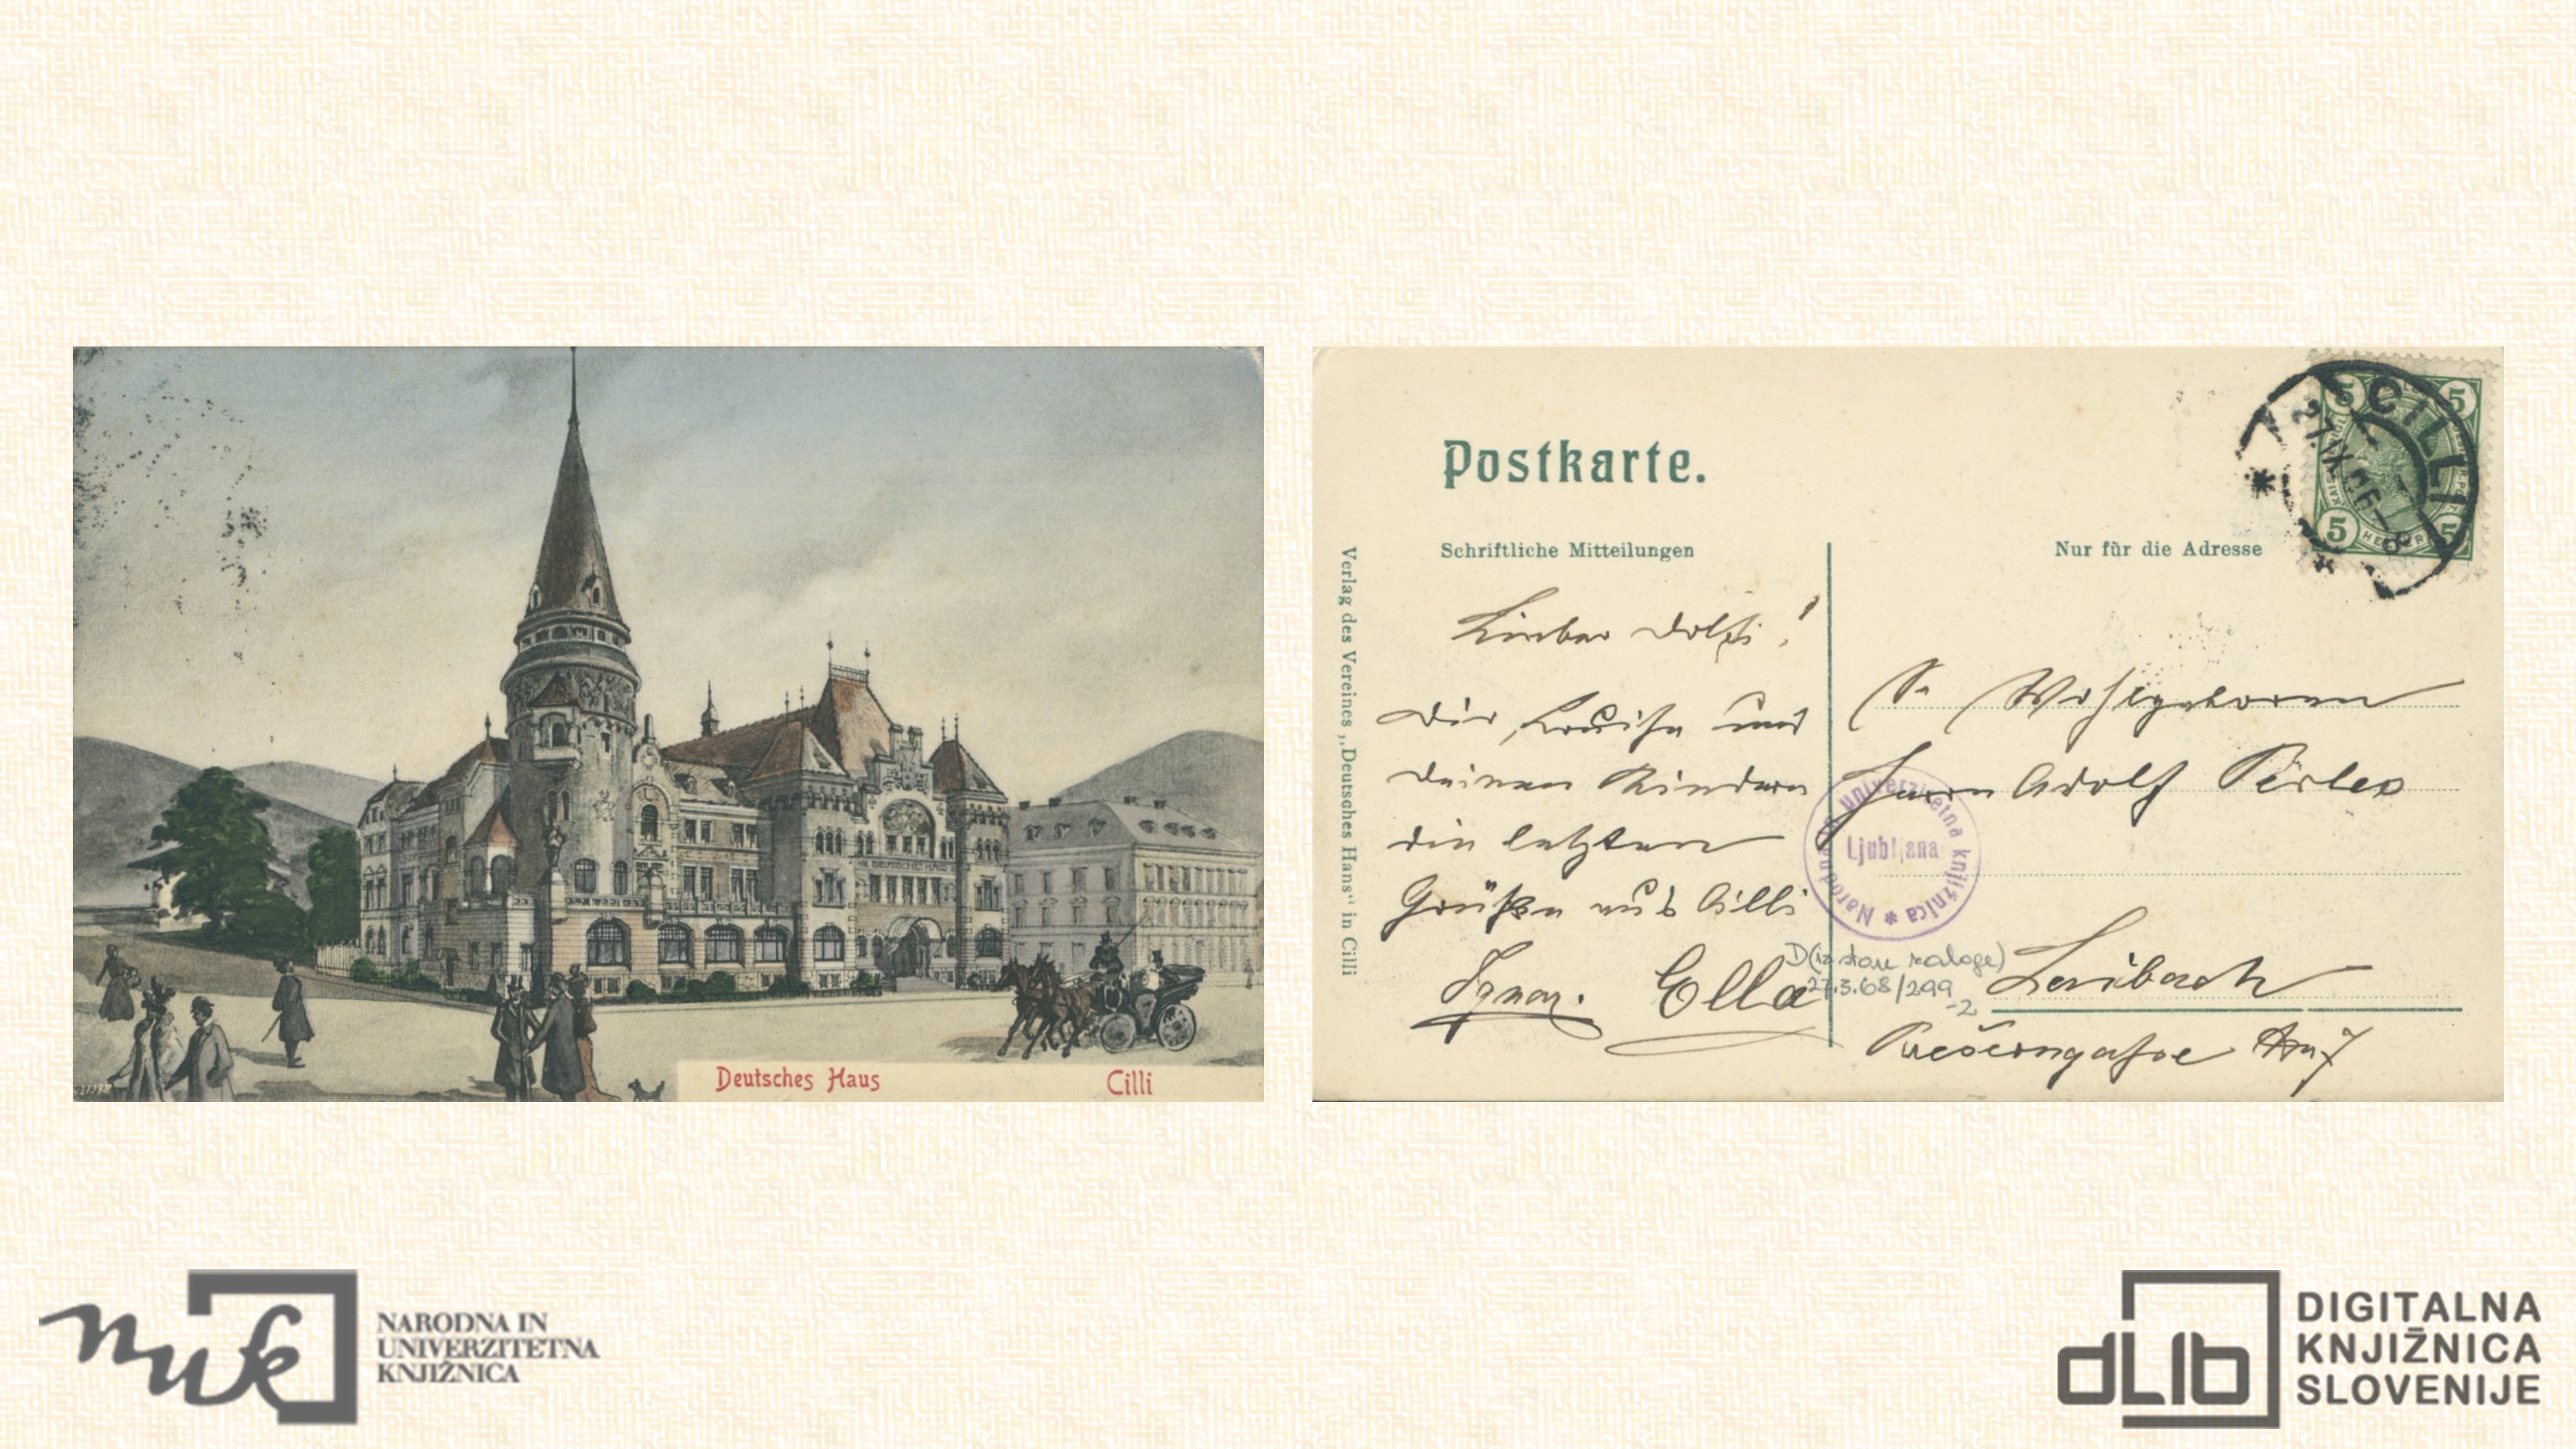 DEUTSCHES HAUS
Deutsches Haus
Cilli
Postkarte.
Schriftliche Mitteilungen
Nur für die Adresse
Verlag des Vereines „Deutsches Haus“ in Cilli
CILLI
27 IX 06
5 5
5 5
HELLER
Lieber Dolfi!
Dir, Louise und
Deinen Kindern
die letzten
Grüße aus Cilli
Ignaz. Ella
Sr Wohlgeboren
Herrn Adolf Perles
Laibach
Prešerngasse 7
Narodna in univerzitetna knjižnica *
Ljubljana
D(iz star zaloge)
27.3.68/299
-2
nuk
NARODNA IN
UNIVERZITETNA
KNJIŽNICA
dLib
DIGITALNA
KNJIŽNICA
SLOVENIJE